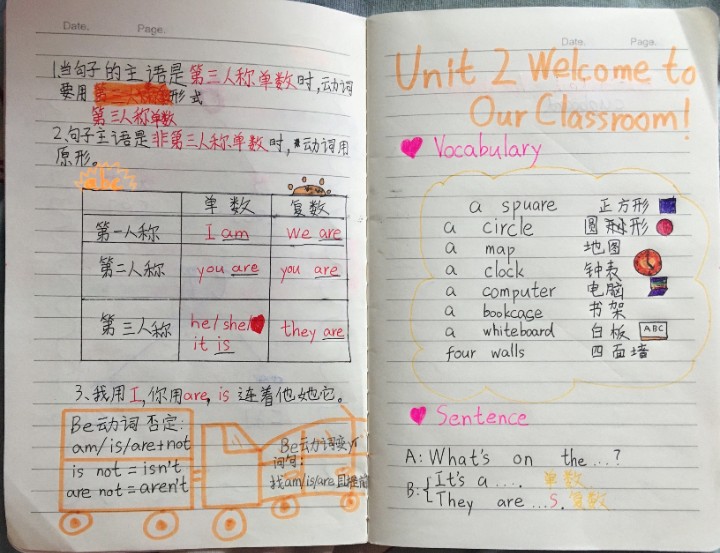 Date. Page.
1.当句子的主语是第三人称单数时,动词
要用形式
第三人称单数
2.句子主语是非第三人称单数时,动词用
原形。
abc
单数 复数
第一人称 I am we are
第二人称 you are you are
第三人称 he/she/ they are
it is
3、我用I,你用are, is 连着他她它。
Be动词 否定:
am/is/are+not
is not = isn't
are not = aren't
Be动词变
词句:
找am/is/are
Date. Page.
Unit 2 Welcome to
Our Classroom!
Vocabulary
a spuare 正方形
a circle 圆形
a map 地图
a clock 钟表
a computer 电脑
a bookcase 书架
a whiteboard 白板 ABC
four walls 四面墙
Sentence
A: What's on the ...?
B: It's a .... 单数
They are ...s. 复数